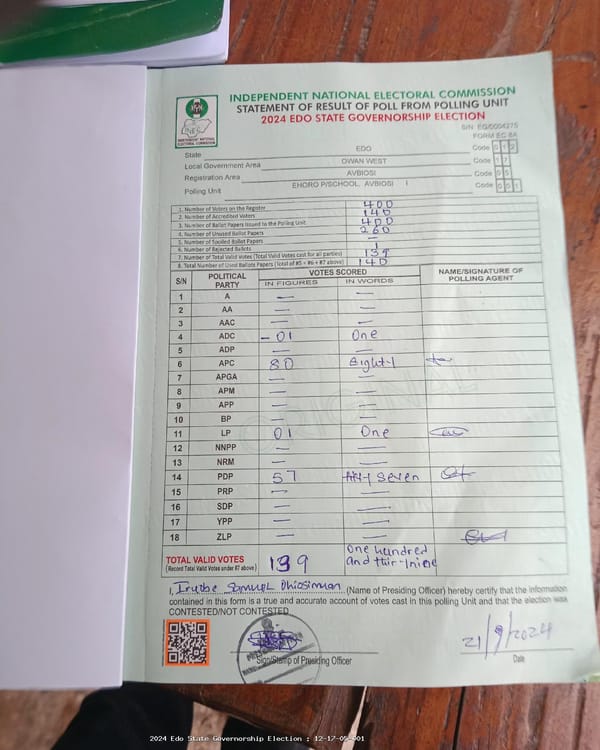 INDEPENDENT NATIONAL ELECTORAL COMMISSION
STATEMENT OF RESULT OF POLL FROM POLLING UNIT
2024 EDO STATE GOVERNORSHIP ELECTION
S/N: EG/0004275
FORM EC 8A
INEC
INDEPENDENT NATIONAL ELECTORAL COMMISSION
State EDO Code 0 1 2
Local Government Area OWAN WEST Code 1 7
Registration Area AVBIOSI Code 0 5
Polling Unit EHORO P/SCHOOL, AVBIOSI I Code 0 0 1
1. Number of Voters on the Register 400
2. Number of Accredited Voters 140
3. Number of Ballot Papers Issued to the Polling Unit 400
4. Number of Unused Ballot Papers 260
5. Number of Spoiled Ballot Papers —
6. Number of Rejected Ballots 1
7. Number of Total Valid Votes (Total Valid Votes cast for all parties) 139
8. Total Number of Used Ballots Papers (Total of #5 + #6 + #7 above) 140
S/N POLITICAL PARTY VOTES SCORED NAME/SIGNATURE OF POLLING AGENT
IN FIGURES IN WORDS
1 A — —
2 AA — —
3 AAC — —
4 ADC - 01 One
5 ADP — —
6 APC 80 Eight-y
7 APGA — —
8 APM — —
9 APP — —
10 BP — —
11 LP 01 One
12 NNPP — —
13 NRM — —
14 PDP 57 seven
15 PRP — —
16 SDP — —
17 YPP — —
18 ZLP — —
TOTAL VALID VOTES 139 One hundred
(Record Total Valid Votes under #7 above) and thir-nine
I, Samuel (Name of Presiding Officer) hereby certify that the information
contained in this form is a true and accurate account of votes cast in this polling Unit and that the election was
CONTESTED/NOT CONTESTED
21/9/2024
Sign/Stamp of Presiding Officer Date
2024 Edo State Governorship Election : 12-17-05-001